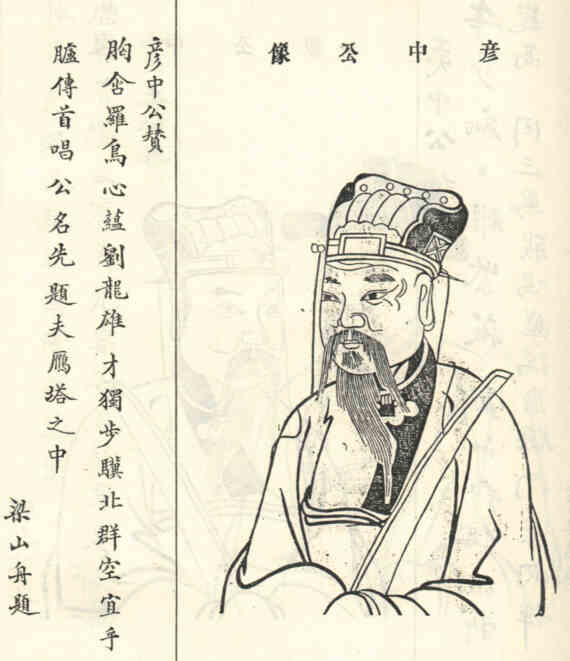 彦中公像
彦中公賛
胸含羅鳥心蘊劉龍雄才獨步驥北群空宜乎
臚傳首唱公名先題夫鴈塔之中
梁山舟題